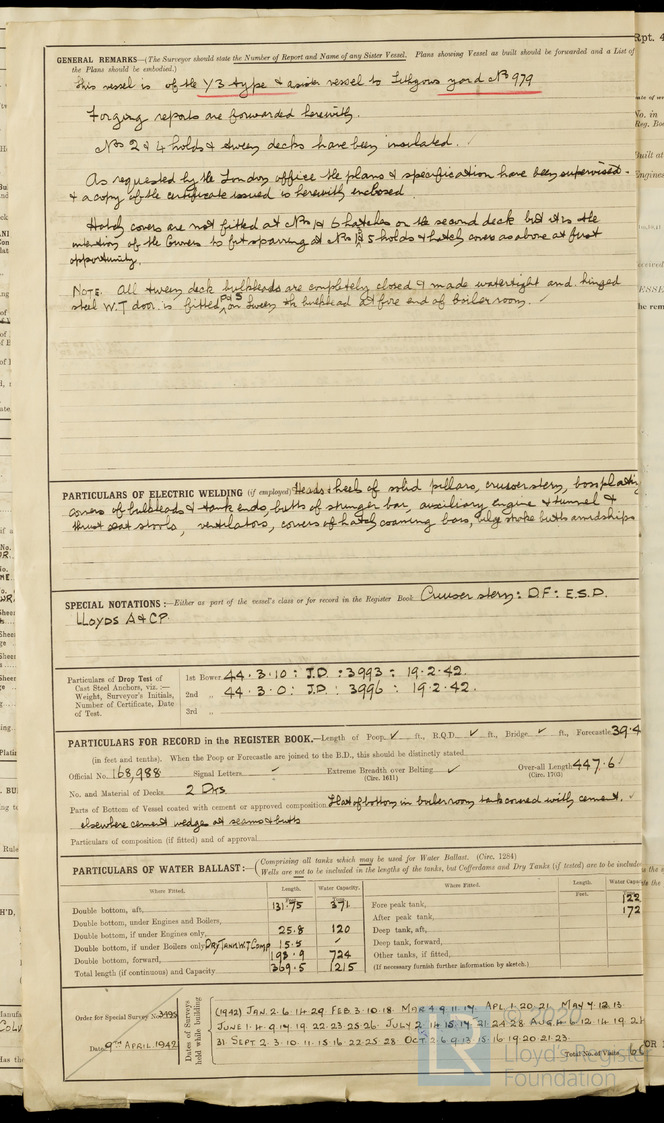 GENERAL REMARKS—(The Surveyor should state the Number of Report and Name of any Sister Vessel. Plans showing Vessel as built should be forwarded and a List of
the Plans should be embodied.)
This vessel is of the Y3 type & a sister vessel to Lithgows yard No 979
Forging reports are forwarded herewith.
Nos 2 & 4 holds & tween decks have been insulated.
As requested by the London office the plans & specification have been supervised
& a copy of the certificate issued is herewith enclosed.
Hatch covers are not fitted at Nos 1 & 6 hatches on the second deck but it is the
intention of the Owners to fit sparring at Nos 1 & 5 holds & hatch covers as above at first
opportunity.
NOTE: All tween deck bulkheads are completely closed & made watertight and hinged
steel W.T door is fitted P&S on tween dk bulkhead at fore end of boiler room. ✓
PARTICULARS OF ELECTRIC WELDING (if employed) Heads & heels of solid pillars, cruiser stern, boss plating
covers of bulkheads & tank ends, butts of stringer bar, auxiliary engine & tunnel &
thrust seat stools, ventilators, corners of hatch coaming bars, bilge stroke butts amidships
SPECIAL NOTATIONS:—Either as part of the vessel's class or for record in the Register Book Cruiser stern: D.F: E.S.D.
LLOYDS A & CP.
Particulars of Drop Test of
Cast Steel Anchors, viz.:—
Weight, Surveyor's Initials,
Number of Certificate, Date
of Test.
1st Bower 44·3·10: J.D.: 3993: 19·2·42.
2nd „ 44·3·0: J.D: 3996: 19·2·42.
3rd „
PARTICULARS FOR RECORD in the REGISTER BOOK.—Length of Poop ✓ ft., R.Q.D. ✓ ft., Bridge ✓ ft., Forecastle 39·4
(in feet and tenths). When the Poop or Forecastle are joined to the B.D., this should be distinctly stated
Official No. 168,988 Signal Letters ✓ Extreme Breadth over Belting ✓ Over-all Length 447·6
(Circ. 1611) (Circ. 1703)
No. and Material of Decks 2 Dks
Parts of Bottom of Vessel coated with cement or approved composition Flat of bottom in boiler room tank coated with cement.
elsewhere cement wedges at seams & butts
Particulars of composition (if fitted) and of approval
PARTICULARS OF WATER BALLAST:— (Comprising all tanks which may be used for Water Ballast. (Circ. 1284)
Wells are not to be included in the lengths of the tanks, but Cofferdams and Dry Tanks (if tested) are to be included
Where Fitted. Length. Water Capacity. Where Fitted. Length. Water Capacity
Double bottom, aft, 131·75 371 Fore peak tank, 122
Double bottom, under Engines and Boilers, After peak tank, 172
Double bottom, if under Engines only, 25·8 120 Deep tank, aft,
Double bottom, if under Boilers only DRY TANK W.T Comp 15·5 ✓ Deep tank, forward,
Double bottom, forward, 724 Other tanks, if fitted,
Total length (if continuous) and Capacity 369·5 1215 (If necessary furnish further information by sketch.)
Order for Special Survey No. 3195
Date 9TH APRIL 1942
Dates of Surveys
held while building
(1942) JAN. 2·6·14·29 FEB. 3·10·18 MAR 4·9·11·14 APL 1·20·21 MAY 7·12·13
JUNE 1·4·9·14·19·22·23·25·26 JULY 2·14·15·17·21·24·28 AUG 4·6·12·14·19·24
31 SEPT. 2·3·10·11·15·16·22·25·28 OCT 2·6·9·13·15·16·19·20·21·23
Total No. of Visits 60
© 2020
LR
Lloyd's Register
Foundation